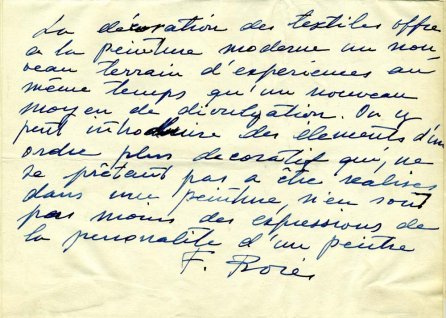 La décoration des textiles offre
a la peinture moderne un nou-
veau terrain d'experiences au
même temps qu'un nouveau
moyen de divulgation. On y
peut introduire des elements d'un
ordre plus decoratif qui, ne
se prêtant pas a être realises
dans une peinture, n'en sont
pas moins des expressions de
la personalite d'un peintre
F. Bores